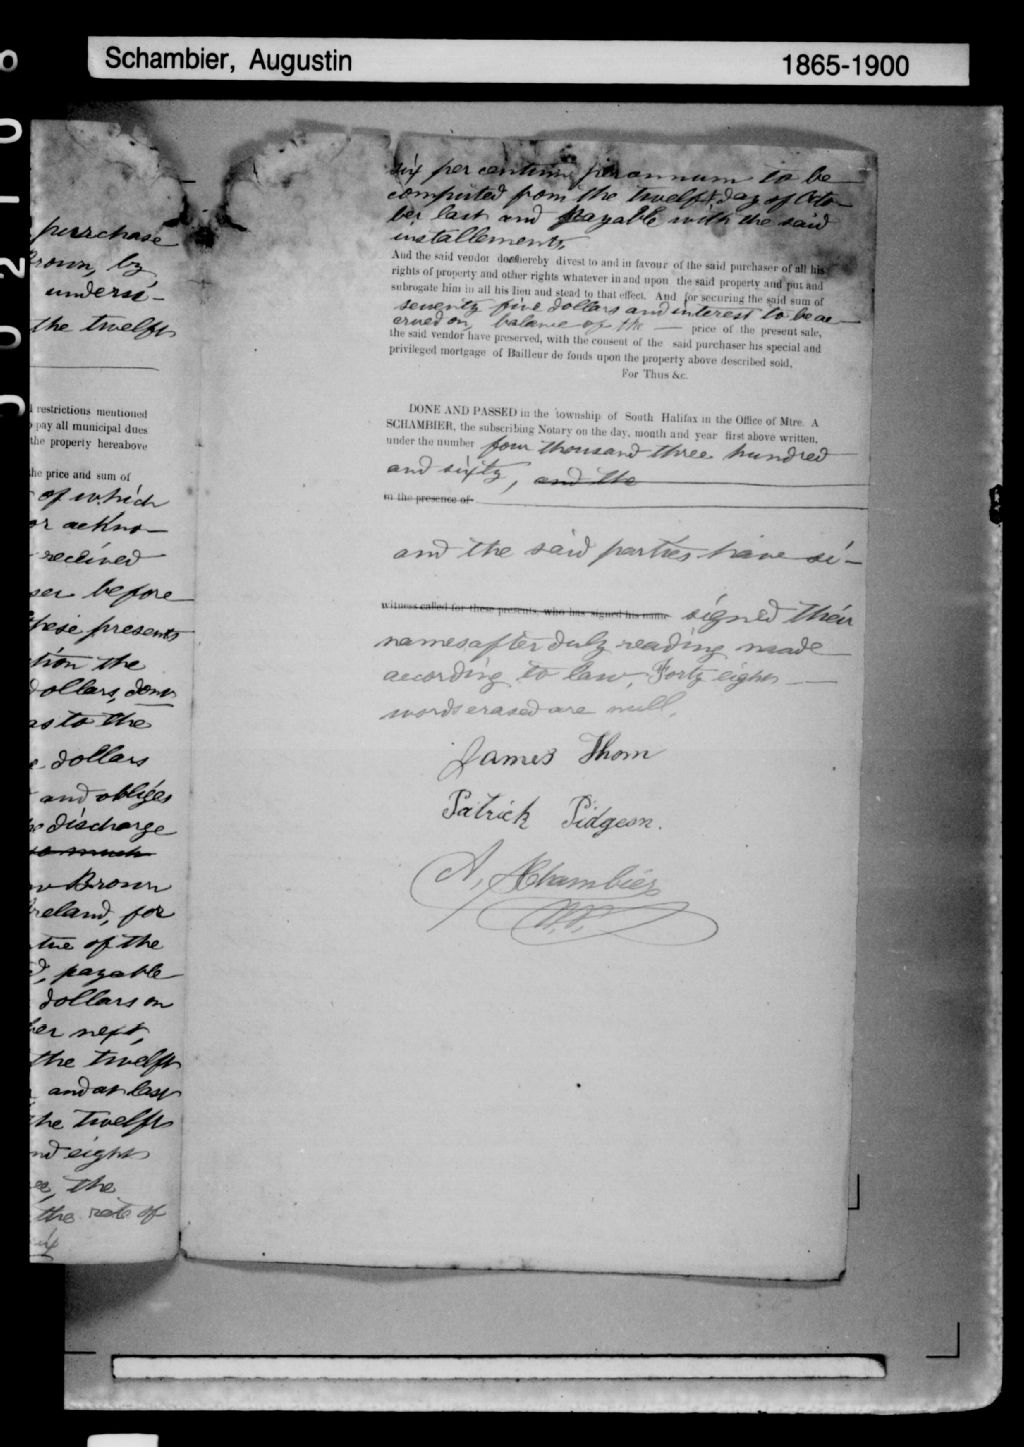 Schambier, Augustin
1865-1900
purrchase
Brown, by
undersi-
the twelft
restrictions mentioned
pay all municipal dues
the property hereabove
the price and sum of
of which
or ackno-
received
ser before
these presents
tion the
dollars, done
as to the
dollars
and obliges
discharge
so much
Brown
Ireland, for
tue of the
payable
dollars on
ber next,
the twelft
and at last
the twelft
nd eight
the
the rate of
six per centum per annum to be
computed from the twelft day of Octo-
ber last and payable with the said
installements,
And the said vendor does hereby divest to and in favour of the said purchaser of all his
rights of property and other rights whatever in and upon the said property and put and
subrogate him in all his lieu and stead to that effect. And for securing the said sum of
seventy five dollars and interest to be ac-
crued on, balance of the — price of the present sale,
the said vendor have preserved, with the consent of the said purchaser his special and
privileged mortgage of Bailleur de fonds upon the property above described sold,
For Thus &c.
DONE AND PASSED in the township of South Halifax in the Office of Mtre. A
SCHAMBIER, the subscribing Notary on the day, month and year first above written,
under the number four thousand three hundred
and sixty, and the
in the presence of
and the said parties have si-
witness called for these presents, who has signed his name signed their
names after duly reading made
acording to law, Forty eight —
words erased are null.
James Thom
Patrick Pidgeon.
A, Schambier
N.P.